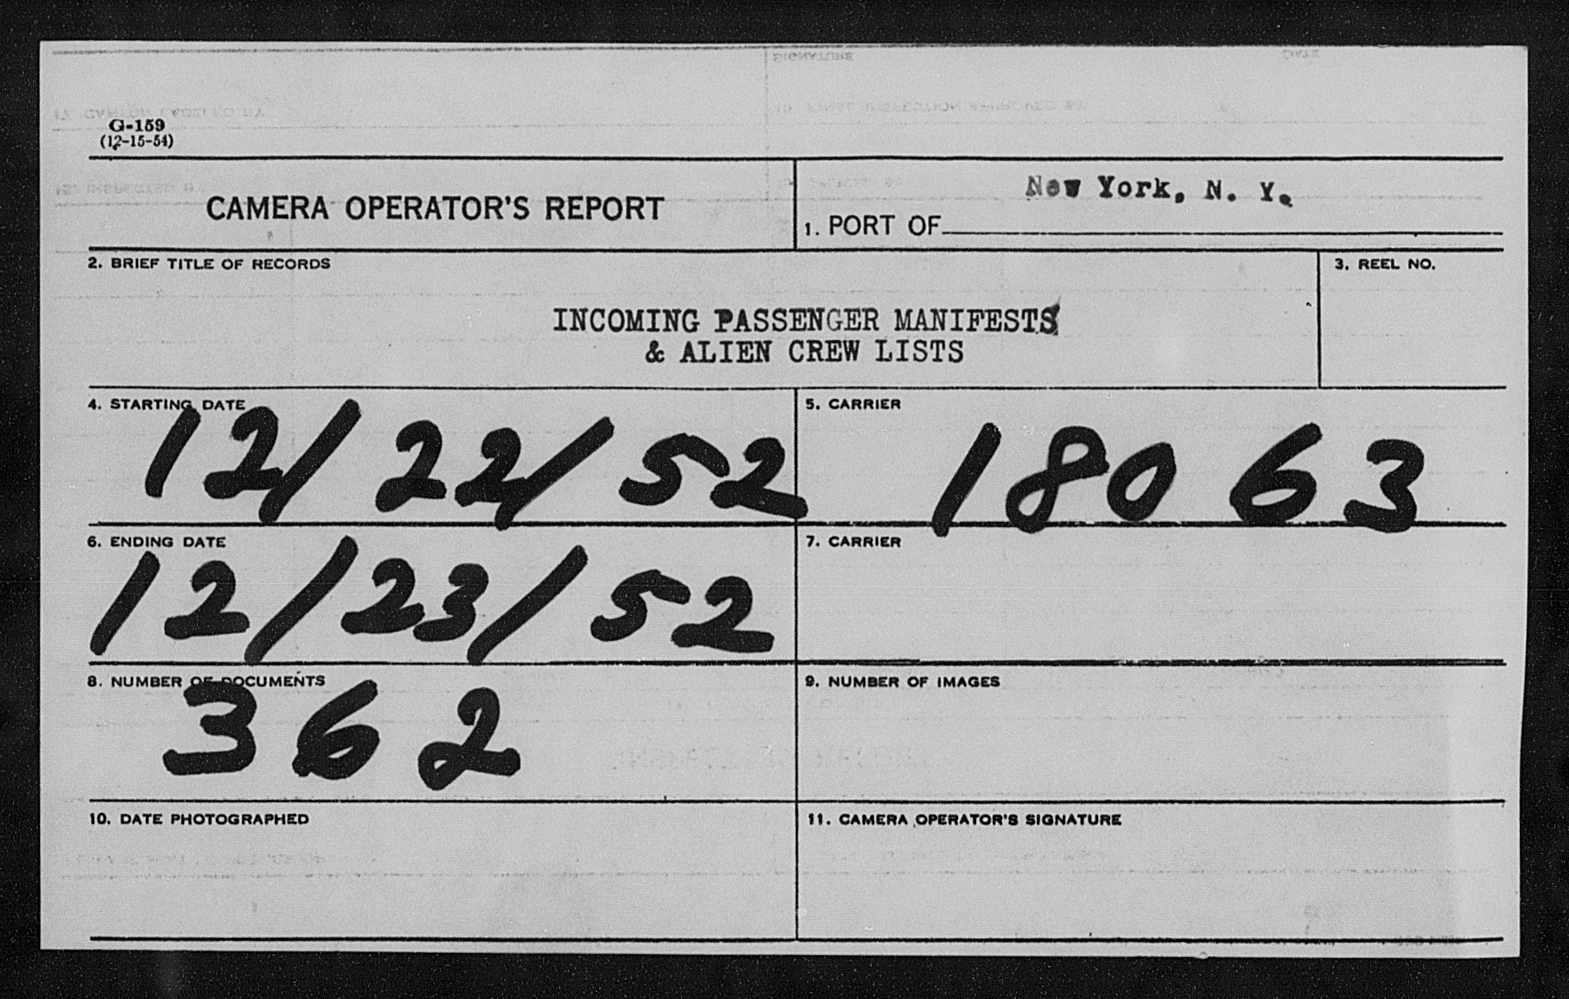 G-159
(12-15-54)
CAMERA OPERATOR'S REPORT
New York, N. Y.
1. PORT OF
2. BRIEF TITLE OF RECORDS
3. REEL NO.
INCOMING PASSENGER MANIFESTS
& ALIEN CREW LISTS
4. STARTING DATE
12/22/52
5. CARRIER
18063
6. ENDING DATE
12/23/52
7. CARRIER
8. NUMBER OF DOCUMENTS
362
9. NUMBER OF IMAGES
10. DATE PHOTOGRAPHED
11. CAMERA OPERATOR'S SIGNATURE